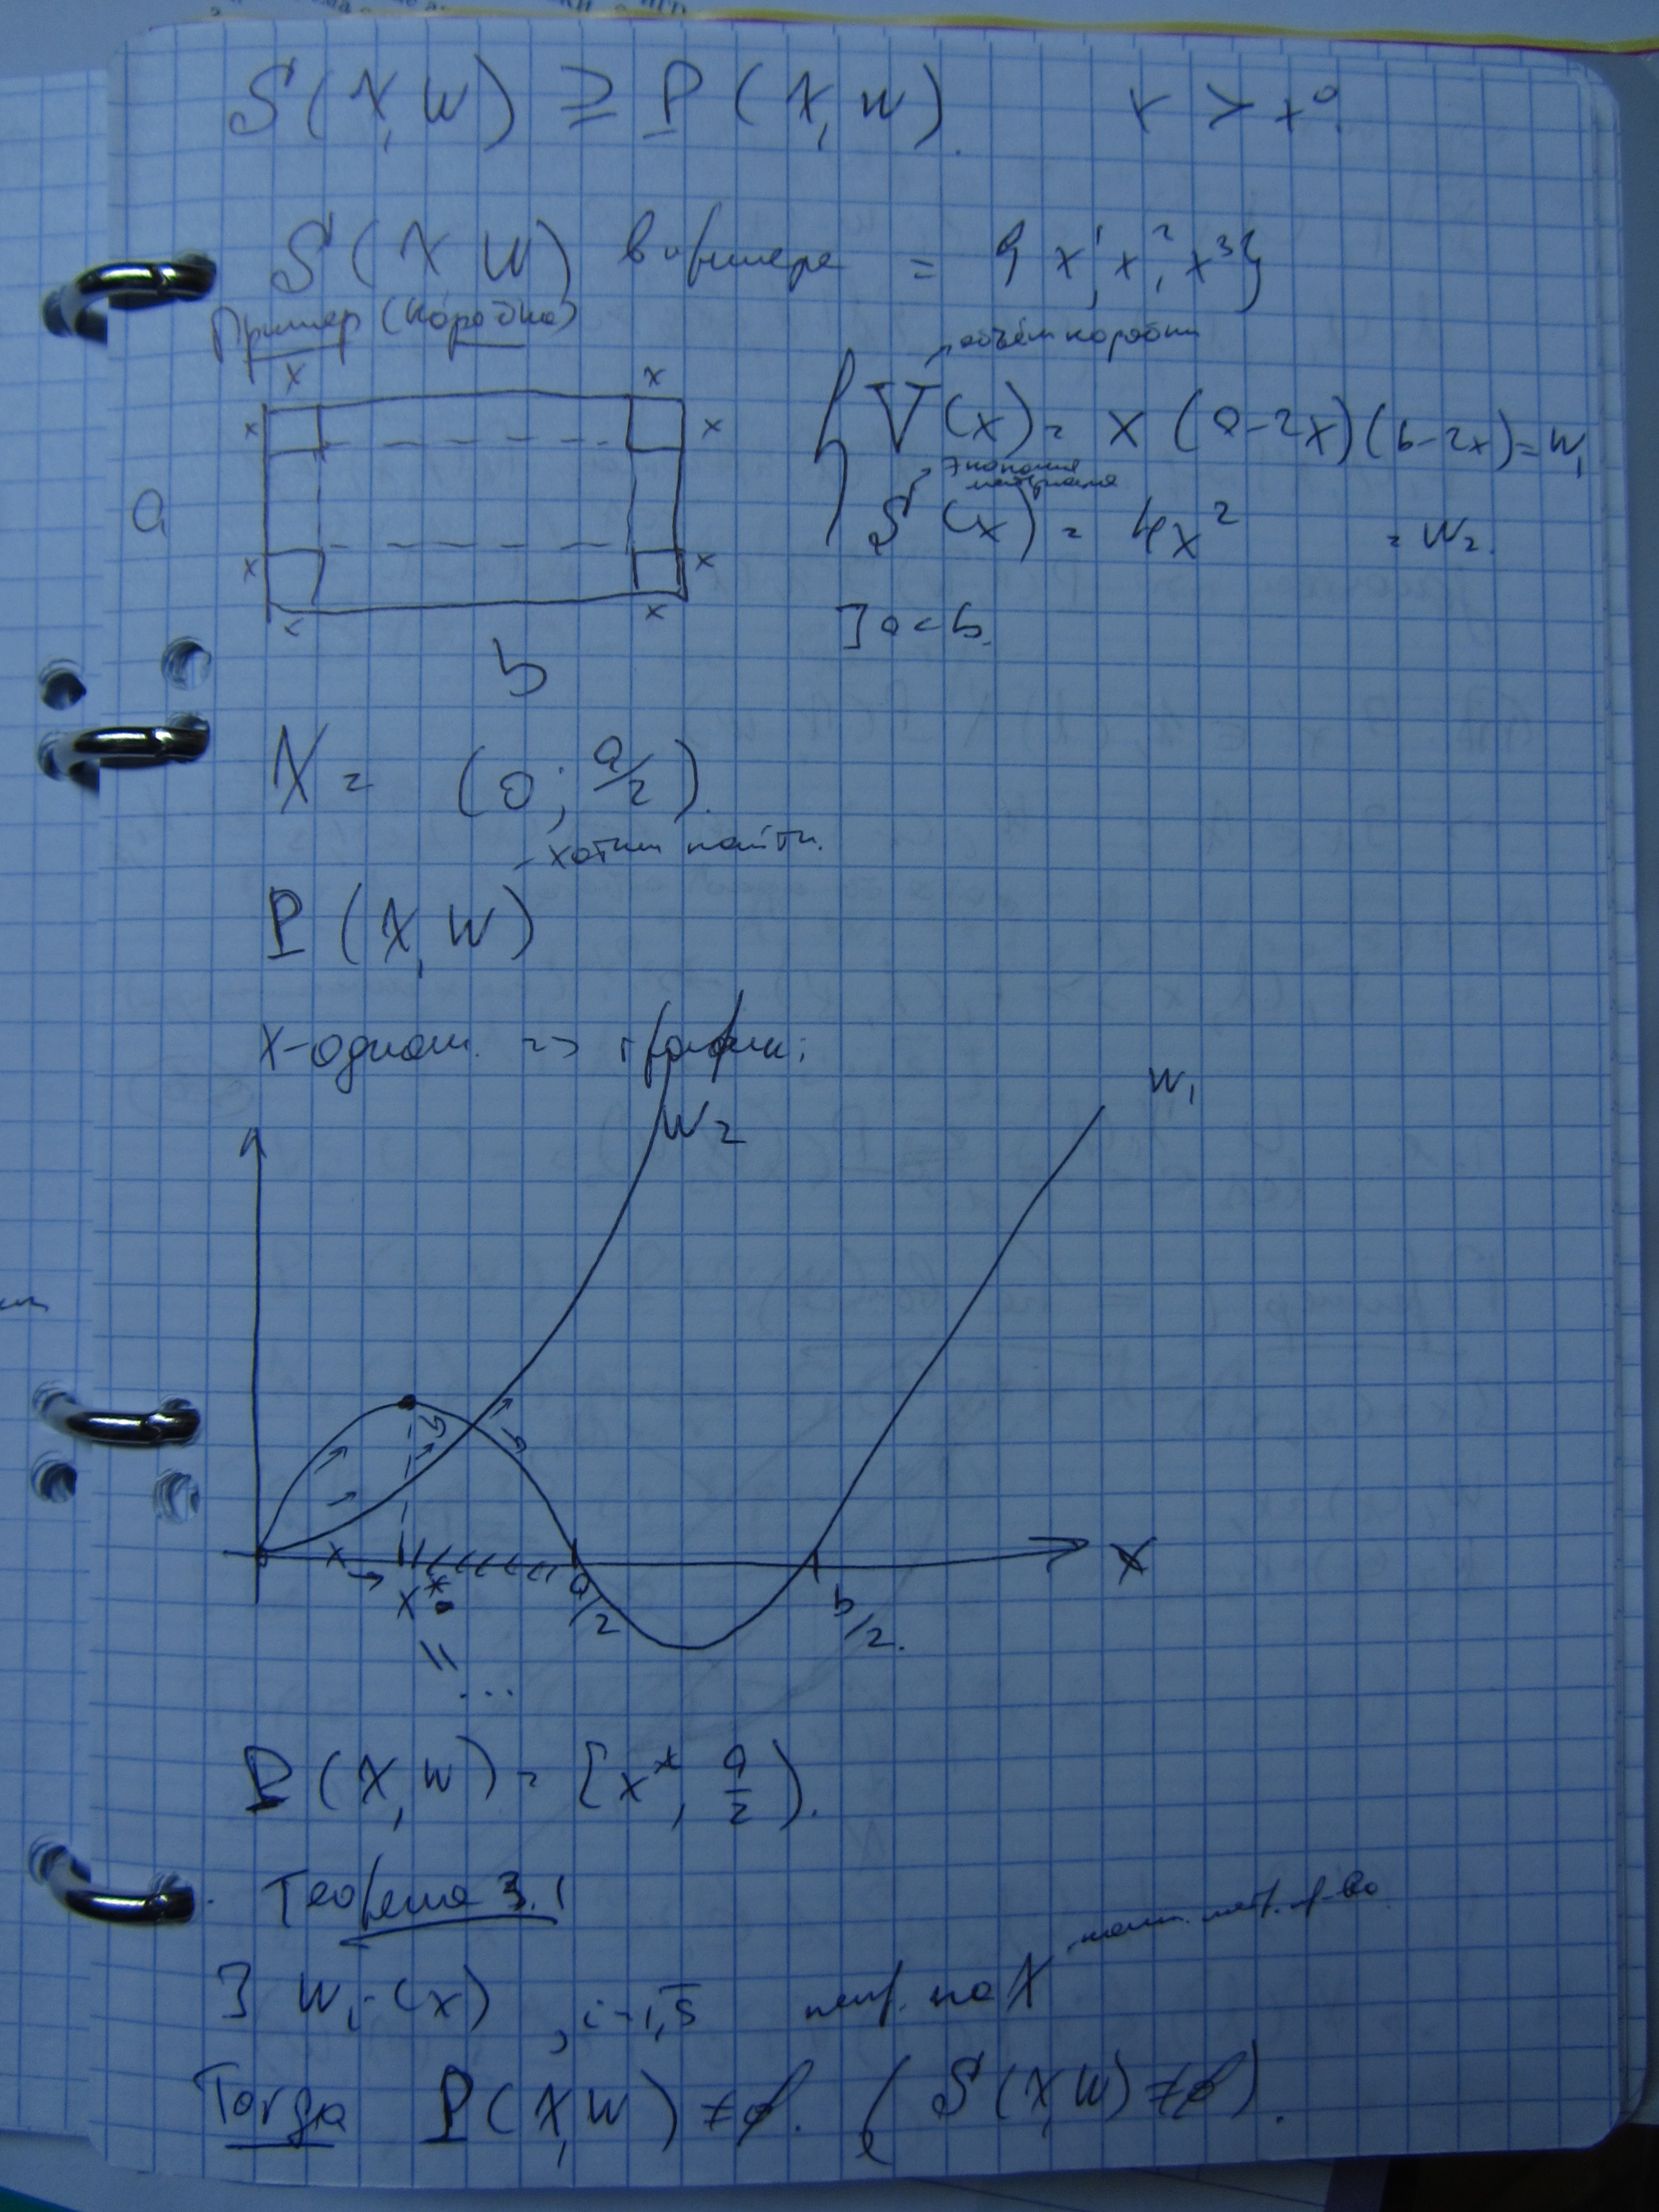 S(X,W) ⊇ P(X,W).
S(X,W) в примере = {x¹, x², x³}
Пример (коробка)
объём коробки
x x
x x
V(x) = x(a-2x)(b-2x) = w₁
экономия
материала
S(x) = 4x² = w₂.
a
x x
x x
] a<b.
b
X = (0; a/2).
- хотим найти.
P(X,W)
x-одном. => графики:
w₁
w₂
x
x*
a/2
b/2.
x
=
...
P(X,W) = [x*, a/2).
Теорема 3.1
комп. метр. пр-во.
] wᵢ(x), i=1,s непр. на X
Тогда P(X,W) ≠ ∅. (S(X,W) ≠ ∅).